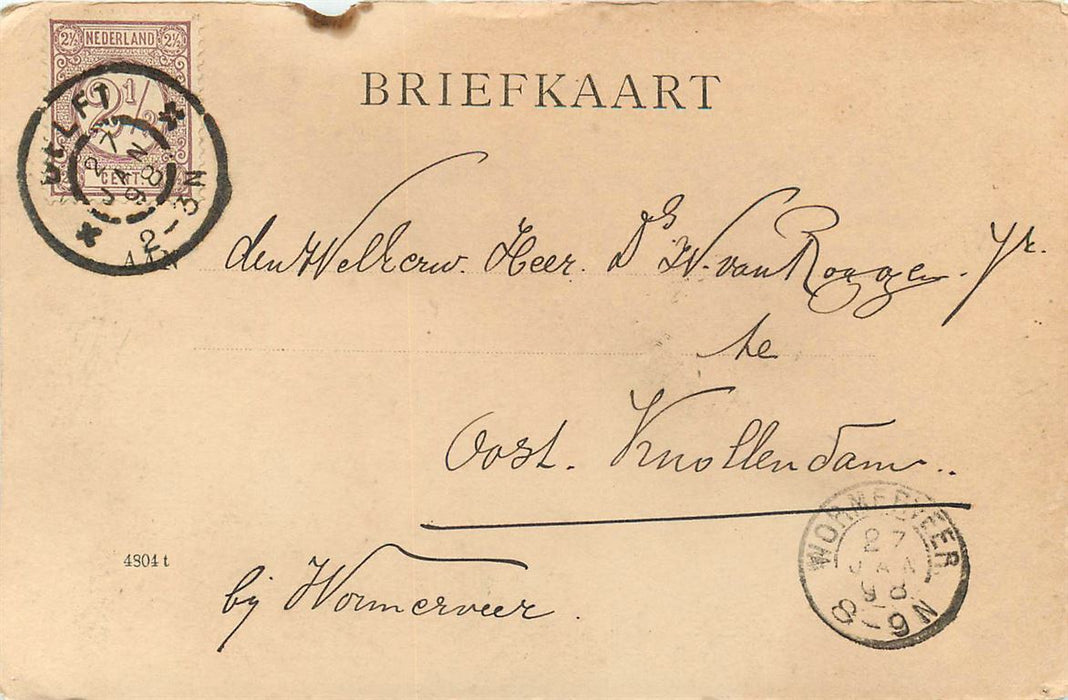 2½ NEDERLAND 2½
2½
CENT.
DELFT
27
JAN
98
2-3N
BRIEFKAART
AAN
den WelEerw. Heer. Ds W. van Rogge. Jr.
te
Oost. Knollendam..
4804 t
bij Wormerveer.
WORMERVEER
27
JAN
98
8-9N